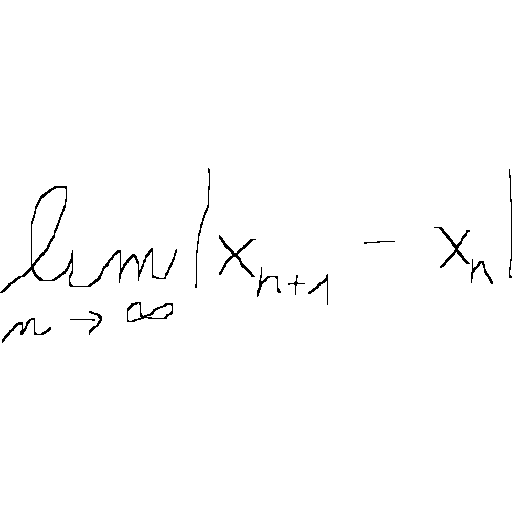 \lim_{n \to \infty} |x_{n+1} - x_n|